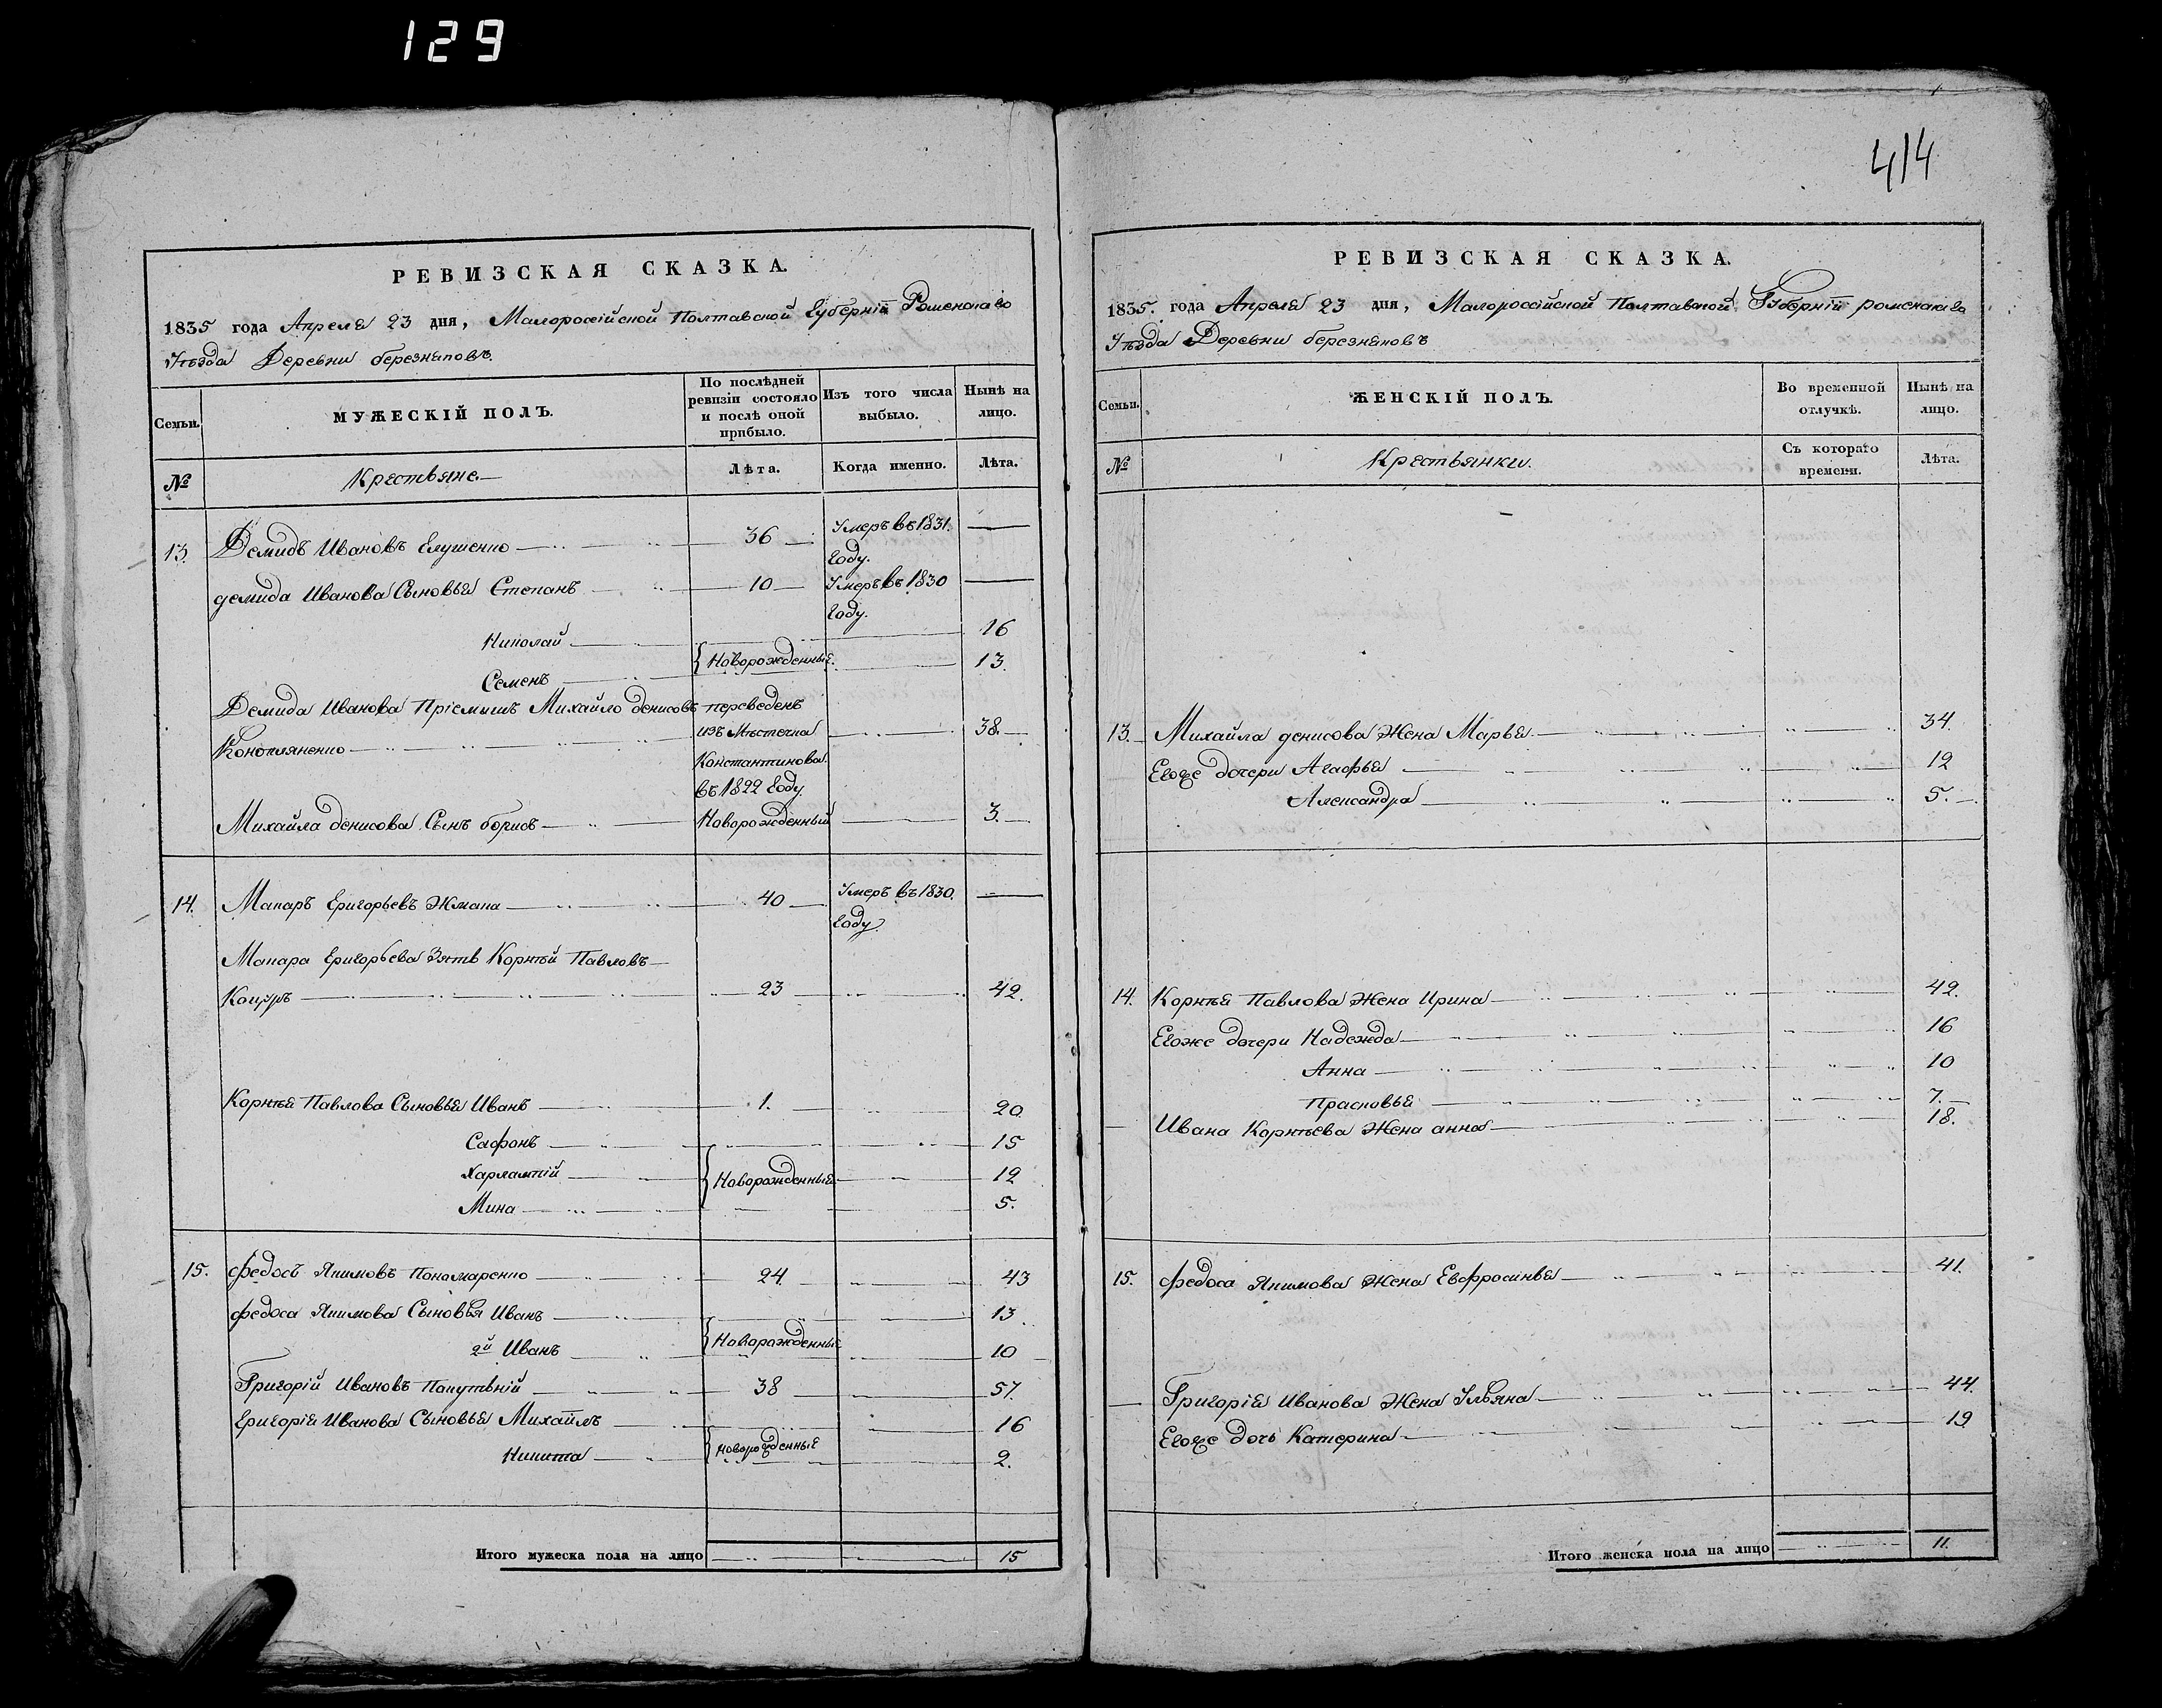 129
414
РЕВИЗСКАЯ СКАЗКА.
1835 года Апреля 23 дня, Малороссійской Полтавской Губерніи Роменскаго
Уѣзда Деревни березняковъ.
Семьи.
МУЖЕСКІЙ ПОЛЪ.
По послѣдней ревизіи состояло и послѣ оной прибыло.
Изъ того числа выбыло.
Нынѣ на лицо.
№
Крестьяне.
Лѣта.
Когда именно.
Лѣта.
13. Демидъ Ивановъ Глушенко 36 Умеръ въ 1831. году.
демида Иванова Сыновья Степанъ 10 Умеръ въ 1830 году.
Николай 16
Семенъ Новорожденныя. 13.
Демида Иванова Пріемышъ Михайло денисовъ переведенъ
Конопляненко изъ Мѣстечка 38.
Константинова
въ 1822 году
Михайла денисова Сынъ борисъ Новорожденный 3.
14. Макаръ Григорьевъ Жмака 40 Умеръ въ 1830. году
Макара Григорьева Зять Корнѣй Павловъ
Коцуръ 23 42.
Корнѣя Павлова Сыновья Иванъ 1. 20.
Сафонъ 15
Харлампій Новорожденныя 12
Мина 5.
15. Федосъ Якимовъ Пономаренко 24. 43
федоса Якимова Сыновья Иванъ 13.
2й Иванъ Новорожденныя 10
Григорій Ивановъ Попутьній 38 57.
Григорія Иванова Сыновья Михаилъ 16
Никита Новорожденныя 2.
Итого мужеска пола на лицо 15
РЕВИЗСКАЯ СКАЗКА.
1835. года Апреля 23 дня, Малороссійской Полтавской Губерніи роменскаго
Уѣзда Деревни березняковъ
Семьи.
ЖЕНСКІЙ ПОЛЪ.
Во временной отлучкѣ.
Нынѣ на лицо.
№
Крестьянки.
Съ котораго времени.
Лѣта.
13. Михайла денисова Жена Марья 34.
Егоже дочери Агафья 12
Александра 5.
14. Корнѣя Павлова Жена Ирина 42.
Егоже дочери Надежда 16
Анна 10
Прасковья 7.
Ивана Корнѣева Жена анна 18.
15. федоса Якимова Жена Евфросинья 41.
Григорія Иванова Жена Ульяна 44.
Егоже дочь Катерина 19
Итого женска пола на лицо 11.